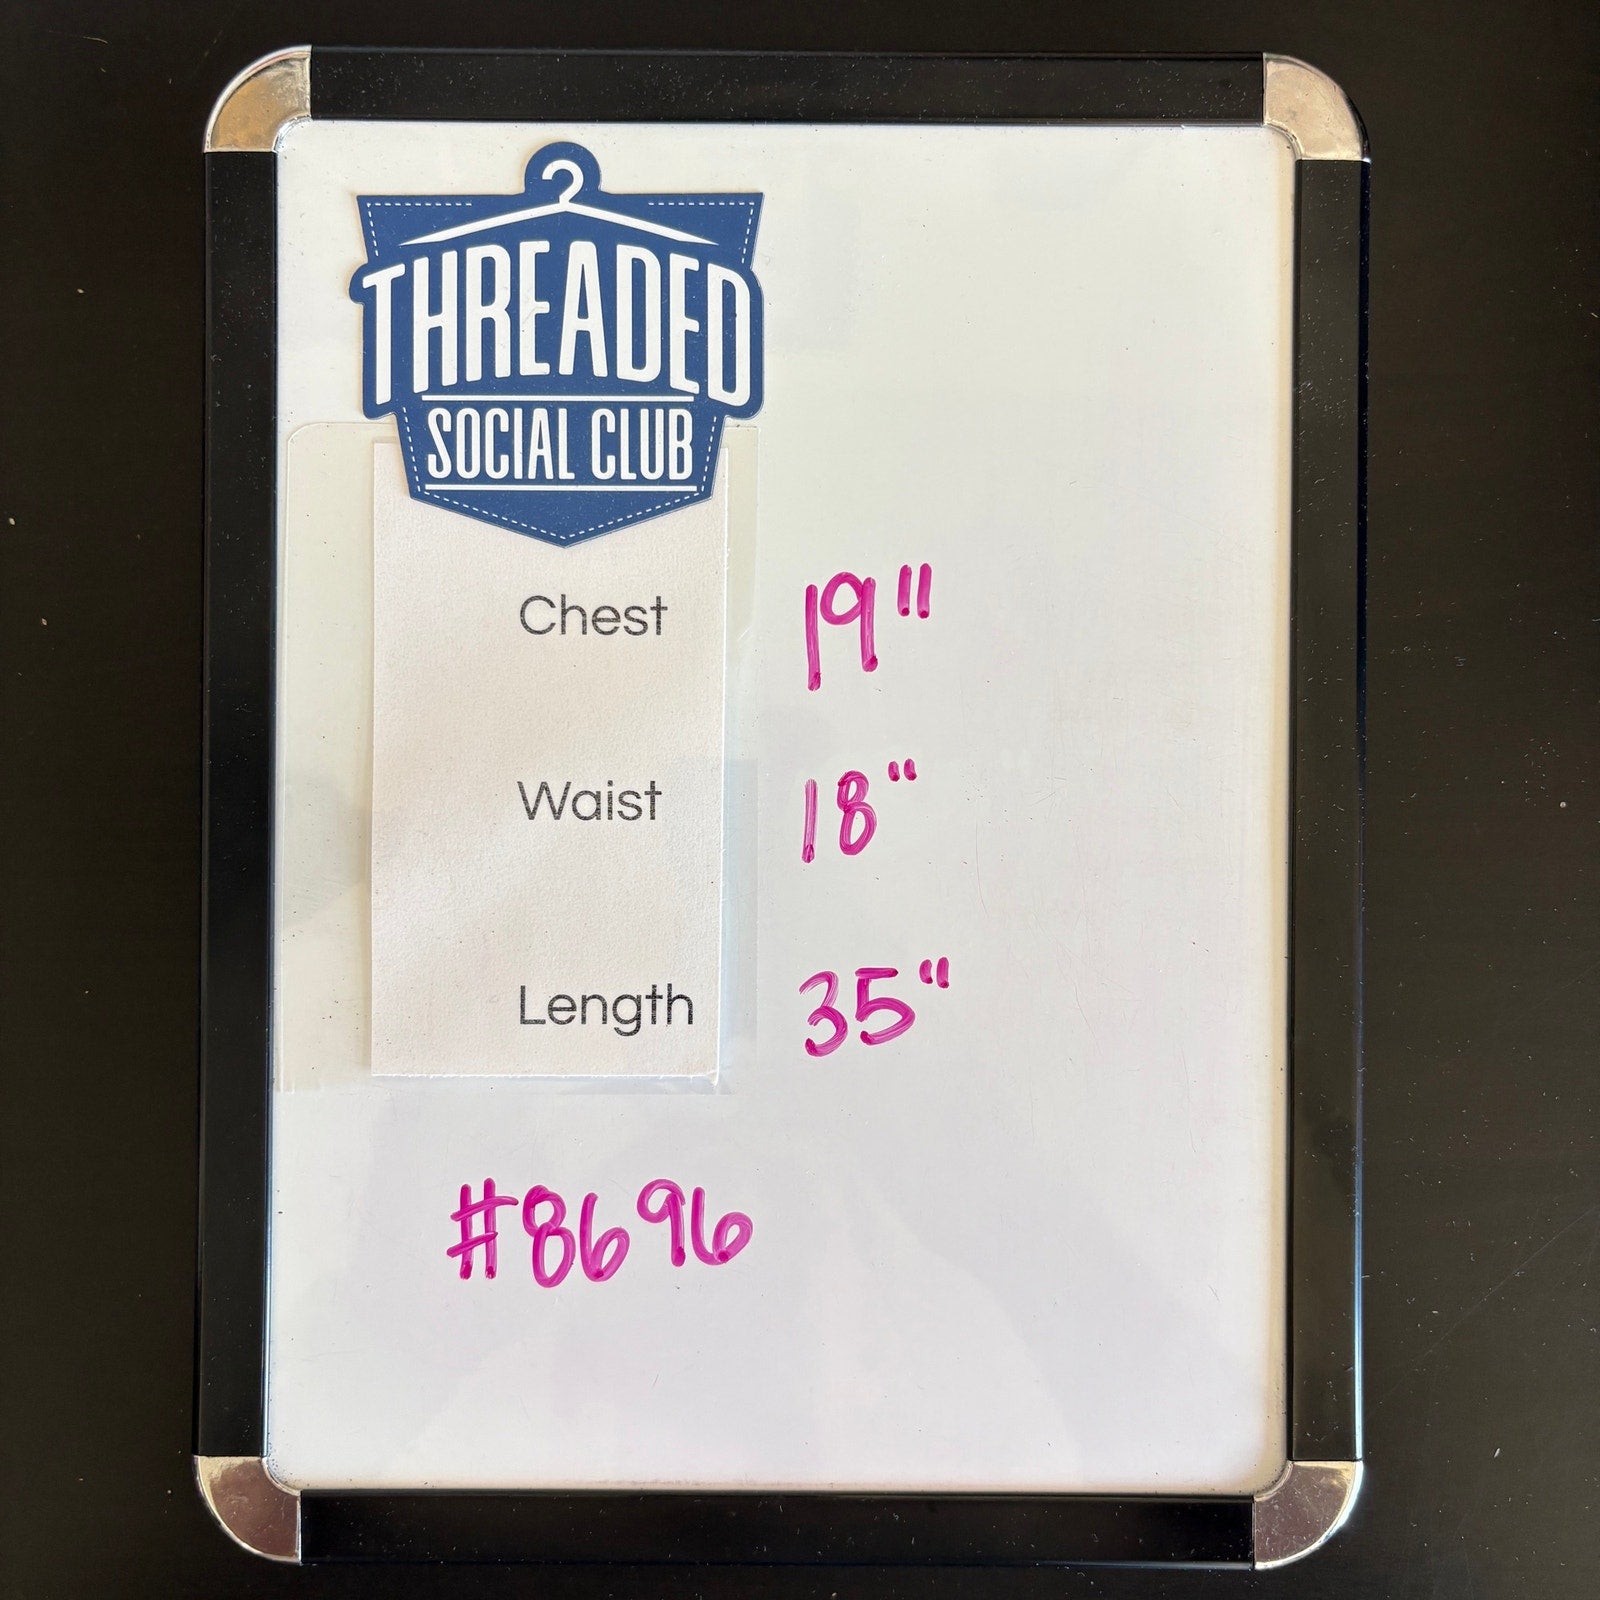 THREADED
SOCIAL CLUB
Chest 19"
Waist 18"
Length 35"
#8696